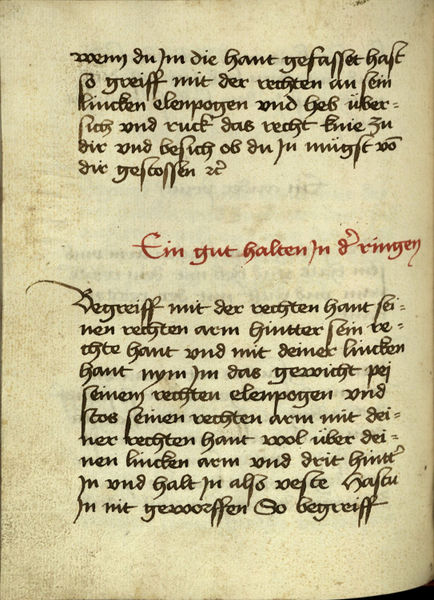 wenn du Jm die hant gefasset hast
so greiff mit der rechten an sein
lincken elenpogen vnd heb über=
sich vnd ruck das recht knie zu
dir vnd besich ob du Jn mügst vō
dir gestossen ⁊c̄
Ein gut halten Jn d' ringen
Begreiff mit der rechten hant sei=
nen rechten arm hintter sein re=
chte hant vnd mit deiner lincken
hant nym Jm das gewicht pei
seinem rechten elenpogen vnd
stos seinen rechten arm mit dei=
ner rechten hant wol über dei=
nen lincken arm vnd drit hintt'
Jn vnd halt Jn also veste Hastu
Jn nit geworffen So begreiff